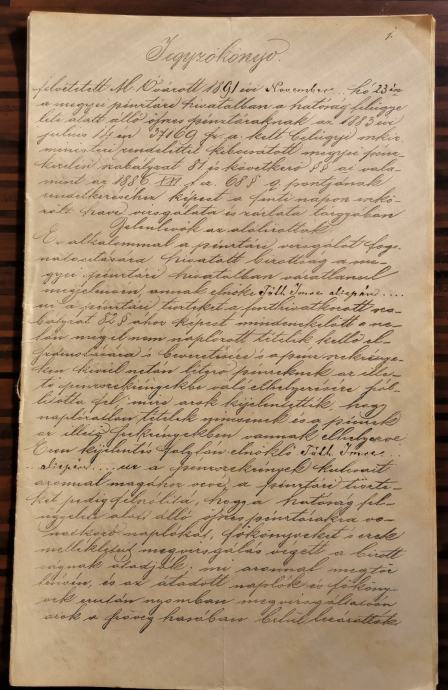 1.
Jegyzőkönyv.
felvétetett M. Óvárott 1891 évi November hó 23 án
a megyei pénztári hivatalban a hatóság felügye
lete alatt álló őspénztáraknak az 1883 évi
julius 14 én 37169 sz. a. kelt belügyi mkir
ministeri rendelettel kibocsátott megyei pénz
kezelési szabályzat 81 és következő §§ ai vala
mint az 1886 XXI t. cz. 68 § g pontjának
rendelkezéséhez képest a fenti napon eszkö
zölt havi vizsgálata és zárlata tárgyában
Jelenlevők az alólirottak
Ez alkalommal a pénztári vizsgálat foga
natositására hivatott bizottság a me
gyei pénztári hivatalban váratlanul
megjelenvén, annak elnöke Tóth Imre alispán ....
ur a pénztári tiszteket a fenthivatkozott sza
bályzat 82 § ához képest mindenekelőtt a ne
tán még el nem naplózott tételek kellő el
számolására s bevezetésére s a pénz szekrénye
ken kivül netán létező pénzeknek az ille
tő pénzszekrényekbe való elhelyezésére szól
litotta fel, mire azok kijelentették, hogy
naplózatlan tételek nincsenek és a pénzek
az illető szekrényekben vannak elhelyezve
Ezen kijelentés folytán elnöklő Tóth Imre ...
alispán .... ur a pénzszekrények kulcsait
azonnal magához veszi, a pénztári tiszte
ket pedig felszólitja, hogy a hatóság fel
ügyelete alatt álló őspénztárakra vo
natkozó naplókat, főkönyveket s ezek
mellékleteit megvizsgálás végett a bizott
ságnak átadják; mi azonnal megtör
ténvén, és az átadott naplók és főköny
vek ezután nyomban megvizsgáltatván
azok a szöveg hasábban belül lezárattak